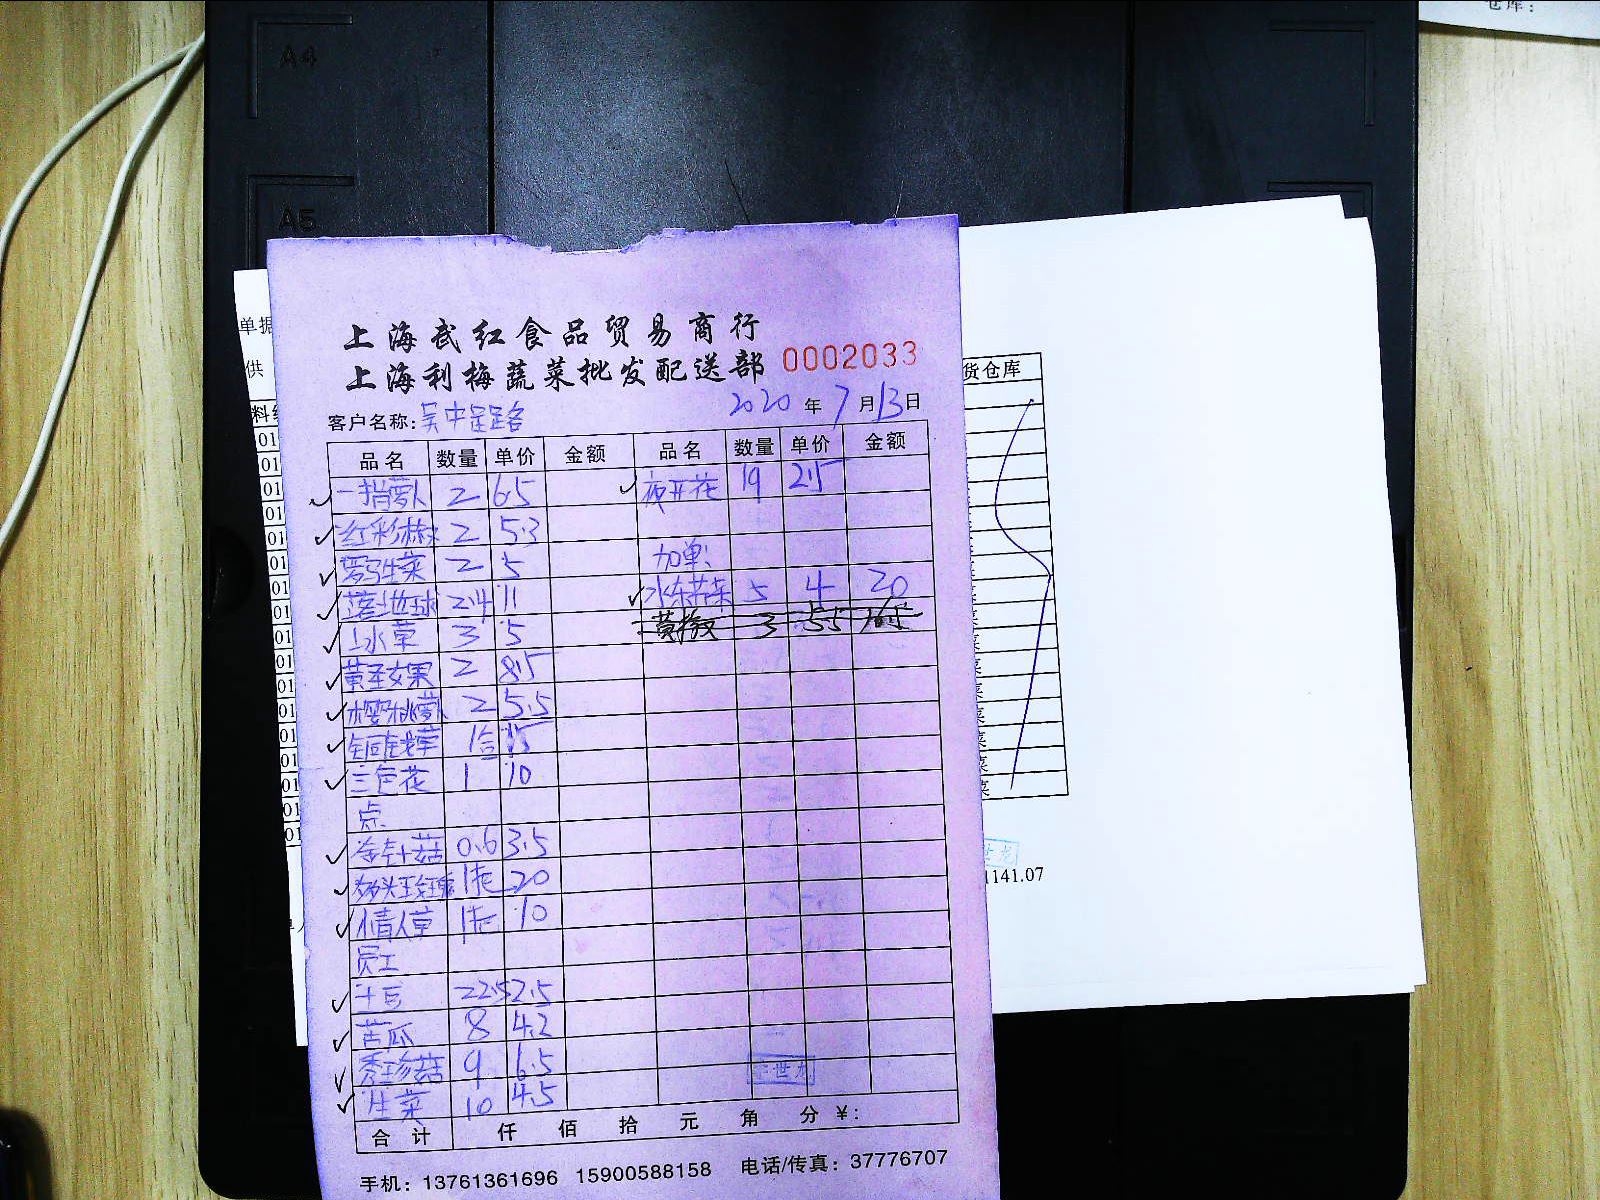 仓库:
A4
A5
单据
供
料
货仓库
上海武红食品贸易商行
上海利梅蔬菜批发配送部 0002033
客户名称: 吴中 路 2020 年 7 月 13 日
品名 数量 单价 金额 品名 数量 单价 金额
一指萝卜 2 6.5 夜开花 19 2.5
红彩椒 2 5.3
罗马生菜 2 5 加单:
落地球 2.4 11 水东芥菜 5 4 20
冰草 3 5 黄椒 3 5.5 16.5
黄圣女果 2 8.5
樱桃萝卜 2 5.5
铜钱草 1合 15
三色花 1 10
点
金针菇 0.6 3.5
多头玫瑰 1扎 20
情人草 1扎 10
员工
土豆 22.5 2.5
苦瓜 8 4.2
秀珍菇 9 6.5
生菜 10 4.5
合计 仟 佰 拾 元 角 分 ¥:
手机: 13761361696 15900588158 电话/传真: 37776707
1141.07